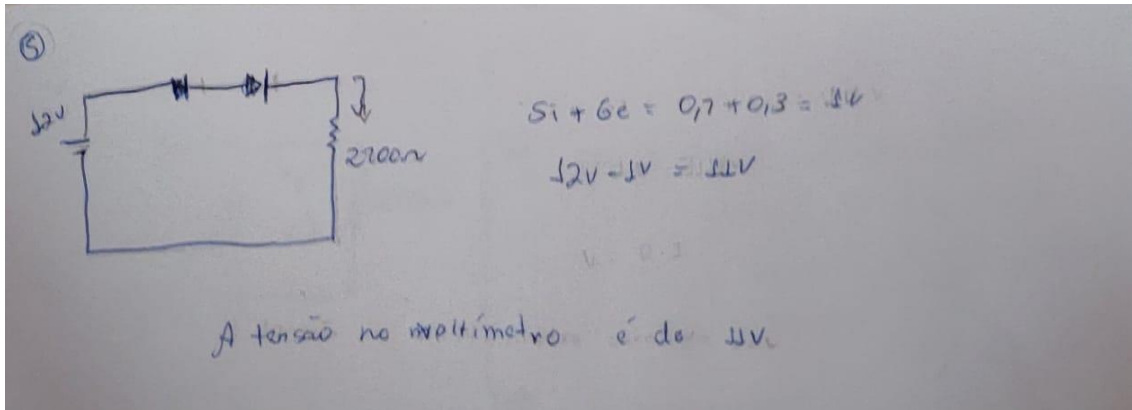 5
12V
2200Ω
Si + Ge = 0,7 + 0,3 = 1V
12V - 1V = 11V
A tensão no voltímetro é de 11V.